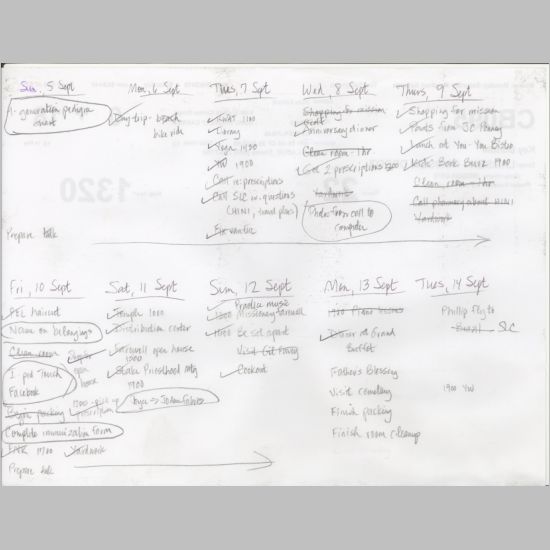 Sun, 5 Sept
Mon, 6 Sept
Tues, 7 Sept
Wed, 8 Sept
Thurs, 9 Sept
4-generation pedigree
chart
Day trip - beach
bike ride
1100
Library
Yoga 1400
YW 1900
Call re: prescriptions
Call SLC re: questions
(H1N1, travel plans)
Shopping for mission
Anniversary dinner
Clean room - 1hr
Get 2 prescriptions 1300
Yardwork
Photos from call to
computer
Shopping for mission
Pants from JC Penney
Lunch at You-You Bistro
Book Buzz 1900
Clean room - 1hr
Call pharmacy about H1N1
Yardwork
Prepare talk
Fri, 10 Sept
Sat, 11 Sept
Sun, 12 Sept
Mon, 13 Sept
Tues, 14 Sept
haircut
Name on belongings
Clean room
open
house
I pod Touch
Facebook
Begin packing
1300 - pick up
prescription
Complete immunization form
1700
Yardwork
Prepare talk
Temple 1000
Distribution center
Farewell open house
1500
Stake Priesthood mtg
1900
Practice music
1300 Missionary farewell
1800 Be set apart
Visit
Cookout
1900 Piano
Dinner at Grand
Buffet
Father's Blessing
Visit cemetery
Finish packing
Finish room cleanup
Phillip fly to
Brazil SLC
1900 YW